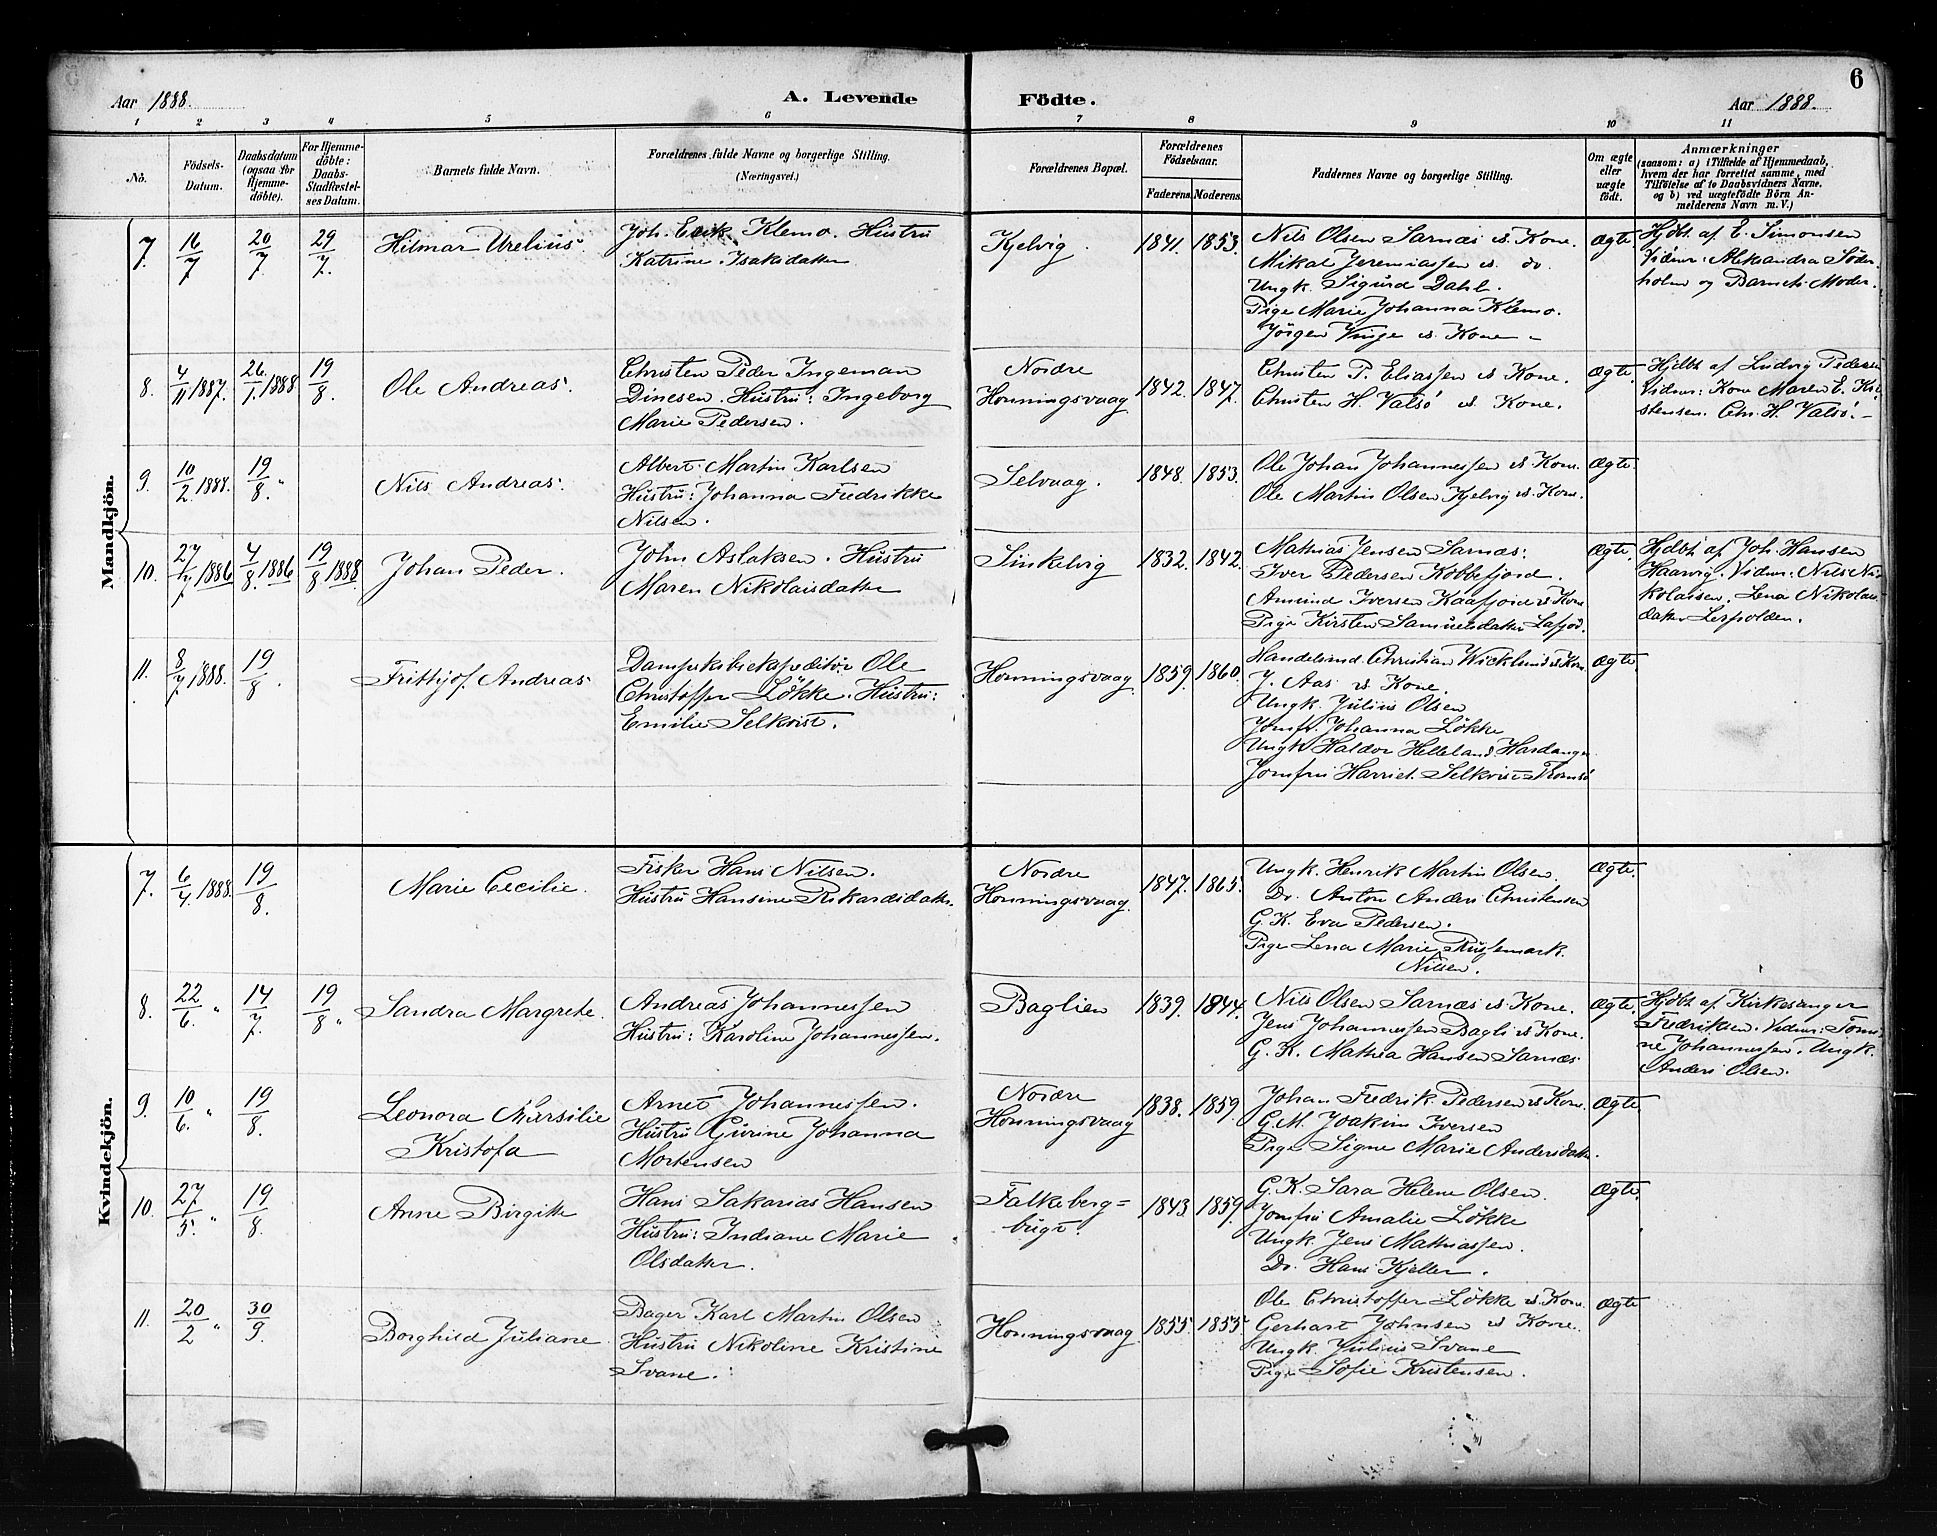 6
Aar 1888.
A. Levende
Födte.
Aar 1888.
1 2 3 4 5 6 7 8 9 10 11
No.
Födsels-
Datum.
Daabsdatum
(ogsaa for
Hjemme-
döbte).
For Hjemme-
döbte:
Daabs-
Stadfæstel-
ses Datum.
Barnets fulde Navn.
Forældrenes fulde Navne og borgerlige Stilling.
(Næringsvei.)
Forældrenes Bopæl.
Forældrenes
Födselsaar.
Faderens. Moderens.
Faddernes Navne og borgerlige Stilling.
Om ægte
eller
uægte
födt.
Anmærkninger
(saasom: a) i Tilfælde af Hjemmedaab,
hvem der har forrettet samme, med
Tilföielse af to Daabsvidners Navne,
og b) ved uægtefödte Börn An-
melderens Navn m. V.)
Mandkjön.
7. 16/7 20/7 29/7.
Hilmar Urelius
Joh. Erik Klemo. Hustru
Katrine Isaksdatter
Kjelvig
1841. 1853.
Nils Olsen Sarnæs & Kone.
Mikal Jeremiassen & do.
Ungk. Sigurd Dahl.
Pige Marie Johanna Klemo.
Jörgen Vinge & Kone
Ægte.
Hjdbt. af E. Simonsen
Vidner: Aleksandra Söder-
holm og Barnets Moder.
8. 4/11 1887. 26/1 1888 19/8.
Ole Andreas.
Christen Peder Ingeman
Dinesen. Hustru: Ingeborg
Marie Pedersen.
Nordre
Honningsvaag
1842. 1847.
Christen P. Eliassen & Kone.
Christen H. Valsö & Kone.
Ægte.
Hjdbt af Ludvig Pedersen
Vidner: Kone Maren E. Kri-
stensen. Chr. H. Valsö.
9. 10/2 1888. 19/8 "
Nils Andreas.
Albert Martin Karlsen
Hustru: Johanna Fredrikke
Nilsen.
Selvaag.
1848. 1853.
Ole Johan Johannessen & Kone.
Ole Martin Olsen Kjelvig & Kone.
Ægte.
10. 27/7 1886 4/8 1886 19/8 1888.
Johan Peder.
John Aslaksen. Hustru
Maren Nikolaisdatter
Sinkelvig
1832. 1842.
Mathias Jensen Sarnæs.
Iver Pedersen Kobbefjord.
Amund Iversen Kaafjord & Kone
Pige Kirsten Samuelsdatter Lafjor.
Ægte.
Hjdbt. af Joh. Hansen
Haarvig. Vidner: Nils Ni-
kolaisen. Lena Nikolais-
datter Lerpolden.
11. 8/7 1888. 19/8.
Frithjof Andreas
Dampskibsekspeditör Ole
Christoffer Lökke. Hustru:
Emilie Selkvist.
Honningsvaag
1859. 1860.
Handelsmd. Christian Wicklund & Kone.
J. Aas & Kone.
Ungk. Julius Olsen
Jomfr. Johanna Lökke
Ungk Haldor Helleland Hardanger
Jomfru Harriet Selkvist Tromsö
Ægte.
Kvindekjön.
7. 6/4 1888. 19/8.
Marie Cecilie.
Fisker Hans Nilsen.
Hustru Hansine Rikardsdatter.
Nordre
Honningsvaag.
1847. 1865.
Ungk. Henrik Martin Olsen.
Do. Anton Anders Christensen
G. K. Eva Pedersen.
Pige Lena Marie
Nilsen.
Ægte.
8. 22/6 " 14/7. 19/8 "
Sandra Margrete.
Andreas Johannessen
Hustru: Karoline Johannessen.
Baglien
1839. 1844.
Nils Olsen Sarnæs & Kone.
Jens Johannessen Bagli & Kone.
G. K. Mathea Hansen Sarnæs
Ægte.
Hjdbt af Kirkesanger
Fredriksen. Vidner: Tomi-
ne Johannessen. Ungk.
Anders Olsen.
9. 10/6 " 19/8.
Leonora Marsilie
Kristofa
Arnet Johannessen.
Hustru Gurine Johanna
Mortensen
Nordre
Honningsvaag
1838. 1859.
Johan Fredrik Pedersen & Kone.
G. M. Joakim Iversen
Pige Signe Marie Andersdatter.
Ægte.
10. 27/5. " 19/8.
Anne Birgitte
Hans Sakarias Hansen
Hustru: Indiane Marie
Olsdatter.
Falkeberg=
bugt.
1843. 1859.
G. K. Sara Helene Olsen.
Jomfru Amalie Lökke
Ungk. Jens Mathiassen.
Do. Hans Kjeller.
Ægte.
11. 20/2 " 30/9.
Borghild Juliane
Bager Karl Martin Olsen
Hustru Nikoline Kristine
Svane.
Honningsvaag
1855. 1855.
Ole Christoffer Lökke & Kone.
Gerhart Johnsen & Kone.
Ungk. Julius Svane
Pige Sofie Kristensen.
Ægte